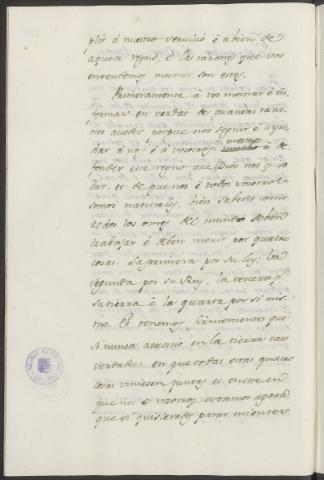 plir á nuestro servicio é a bien de
aquest regno, é las razones que vos
entendemos mostrar son estas.
Primeramente á vos mostrar é in
formar en verdat de quantas razo
nes avedes porque nos seguir é ayu
dar á nos é á vosotros mesmos á de
fender este regno que Dios nos quiso
dar, et de que nos é todos vosotros
somos naturales, bien sabedes como
todos los omes del mundo deben
trabajar é deben morir por quatro
cosas. La primera por su ley, la se
gunda por su Rey, la tercera p.r
su tierra é la quarta por si mis
mo. Et tenemos firmemente que
si nunca acaeció en la tierra caso
verdadero en que todas estas quatro
cosas viniesen juntas es en este en
que nos é vosotros estamos agora
que si quisieredes parar mientes